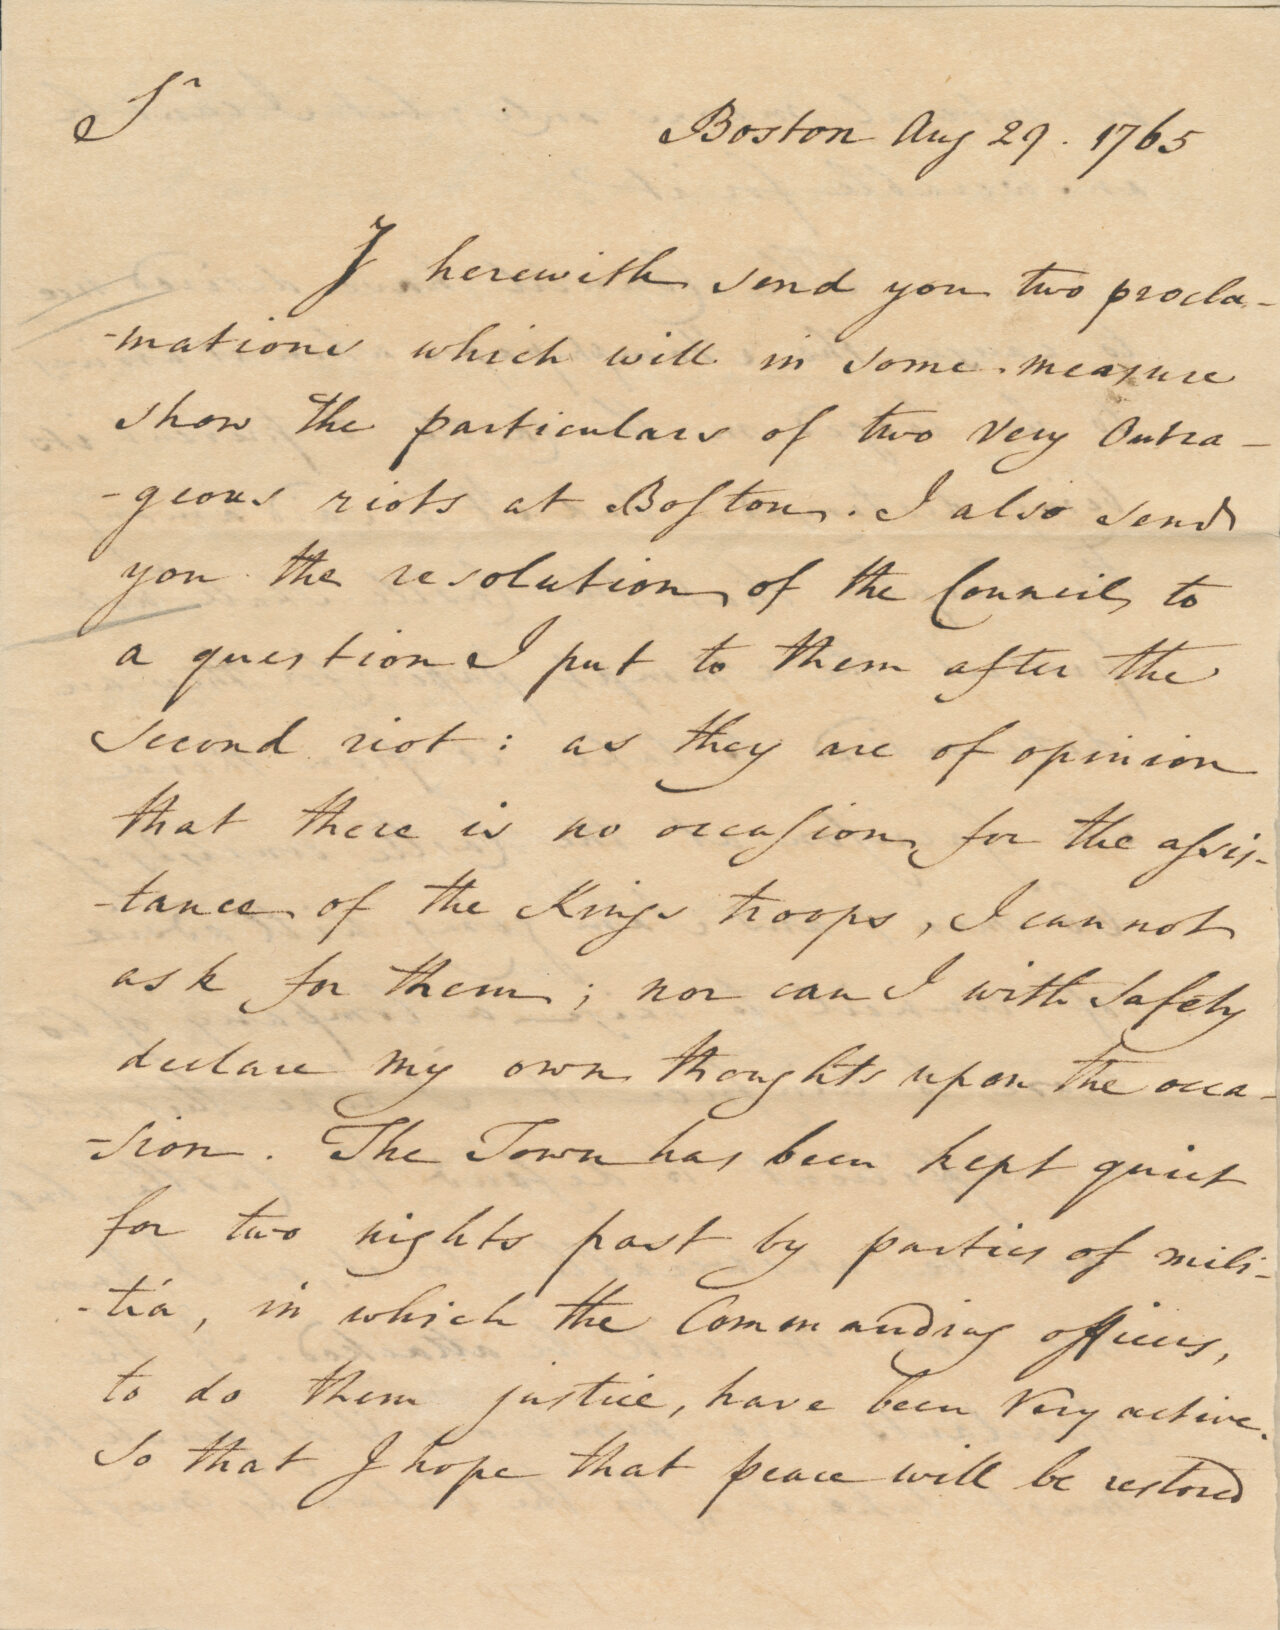 Sr
Boston Aug 29. 1765
I herewith send you two procla-
-mations which will in some measure
show the particulars of two very Outra-
-geous riots at Boston. I also send
you the resolution of the Council to
a question I put to them after the
second riot: as they are of opinion
that there is no occasion for the assis-
-tance of the Kings troops, I cannot
ask for them; nor can I with safety
declare my own thoughts upon the occa-
-sion. The Town has been kept quiet
for two nights past by parties of mili-
-tia, in which the Commanding officers,
to do them justice, have been very active.
So that I hope that peace will be restored